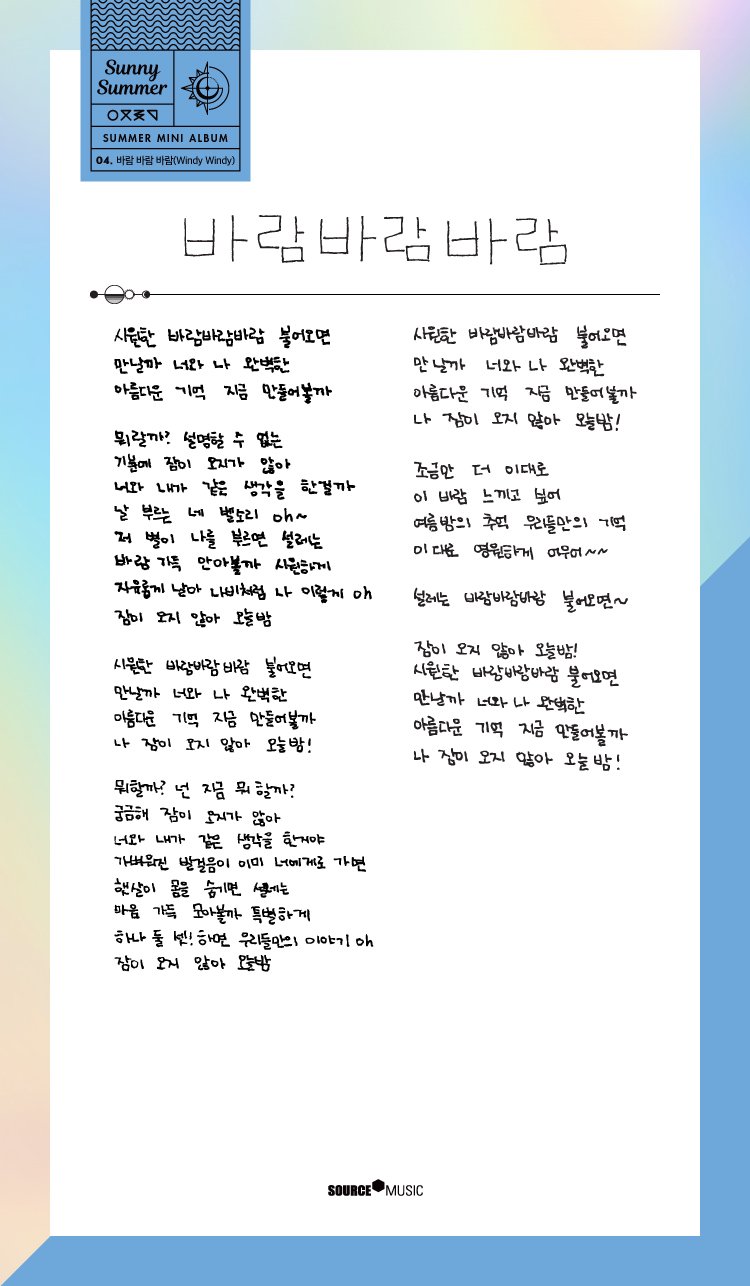 Sunny
Summer
SUMMER MINI ALBUM
04. 바람 바람 바람(Windy Windy)
바람바람바람
시원한 바람바람바람 불어오면
만날까 너와 나 완벽한
아름다운 기억 지금 만들어볼까
뭐랄까? 설명할 수 없는
기분에 잠이 오지가 않아
너와 내가 같은 생각을 한걸까
날 부르는 네 벨소리 oh~
저 별이 나를 부르면 설레는
바람 가득 안아볼까 시원하게
자유롭게 날아 나비처럼 나 이렇게 oh
잠이 오지 않아 오늘밤
시원한 바람바람바람 불어오면
만날까 너와 나 완벽한
아름다운 기억 지금 만들어볼까
나 잠이 오지 않아 오늘밤!
뭐할까? 넌 지금 뭐 할까?
궁금해 잠이 오지가 않아
너와 내가 같은 생각을 한거야
가벼워진 발걸음이 이미 너에게로 가면
햇살이 몸을 숨기면 설레는
마음 가득 모아볼까 특별하게
하나 둘 셋! 하면 우리들만의 이야기 oh
잠이 오지 않아 오늘밤
시원한 바람바람바람 불어오면
만날까 너와 나 완벽한
아름다운 기억 지금 만들어볼까
나 잠이 오지 않아 오늘밤!
조금만 더 이대로
이 바람 느끼고 싶어
여름밤의 추억 우리들만의 기억
이대로 영원하게 여우어~~
설레는 바람바람바람 불어오면~
잠이 오지 않아 오늘밤!
시원한 바람바람바람 불어오면
만날까 너와 나 완벽한
아름다운 기억 지금 만들어볼까
나 잠이 오지 않아 오늘밤!
SOURCE MUSIC